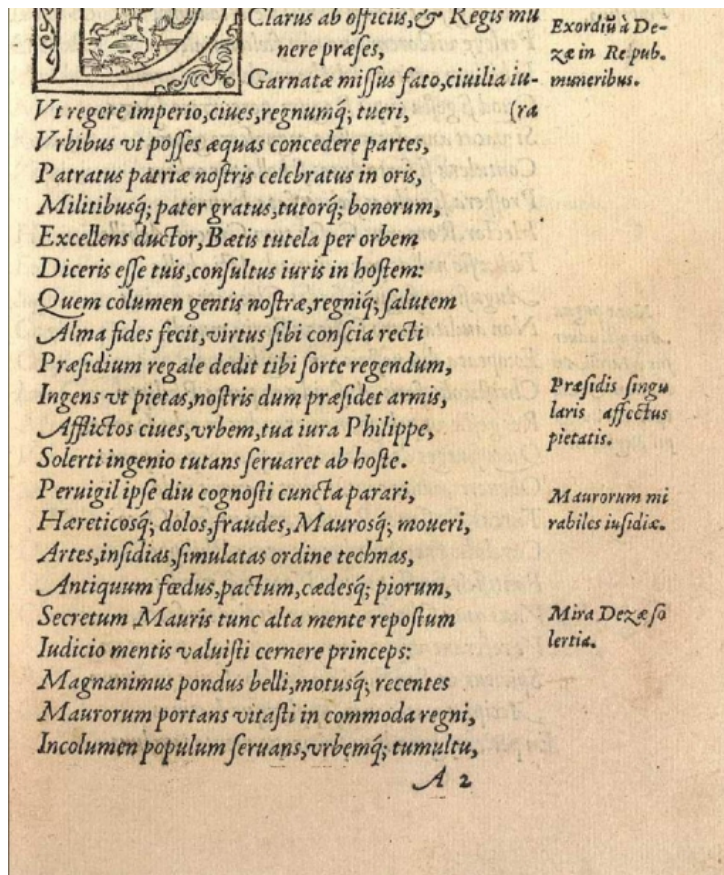 Clarus ab officiis,& Regis mu
nere præses,
Garnatæ missus fato,ciuilia iu-
Vt regere imperio,ciues,regnumq́; tueri, (ra
Vrbibus vt posses æquas concedere partes,
Patratus patriæ nostris celebratus in oris,
Militibusq́; pater gratus,tutorq́; bonorum,
Excellens ductor,Bætis tutela per orbem
Diceris esse tuis,consultus iuris in hostem:
Quem columen gentis nostræ,regniq́; salutem
Alma fides fecit,virtus sibi conscia recti
Præsidium regale dedit tibi sorte regendum,
Ingens vt pietas,nostris dum præsidet armis,
Afflictos ciues,vrbem,tua iura Philippe,
Solerti ingenio tutans seruaret ab hoste.
Peruigil ipse diu cognosti cuncta parari,
Hæreticosq́; dolos,fraudes,Maurosq́; moueri,
Artes,insidias,simulatas ordine technas,
Antiquum fœdus,pactum,cædesq́; piorum,
Secretum Mauris tunc alta mente repostum
Iudicio mentis valuisti cernere princeps:
Magnanimus pondus belli,motusq́; recentes
Maurorum portans vitasti in commoda regni,
Incolumen populum seruans,vrbemq́; tumultu,
A 2
Exordiū à De-
zæ in Repub.
muneribus.
Præsidis singu
laris affectus
pietatis.
Maurorum mi
rabiles iusidiæ.
Mira Dezæ so
lertia.